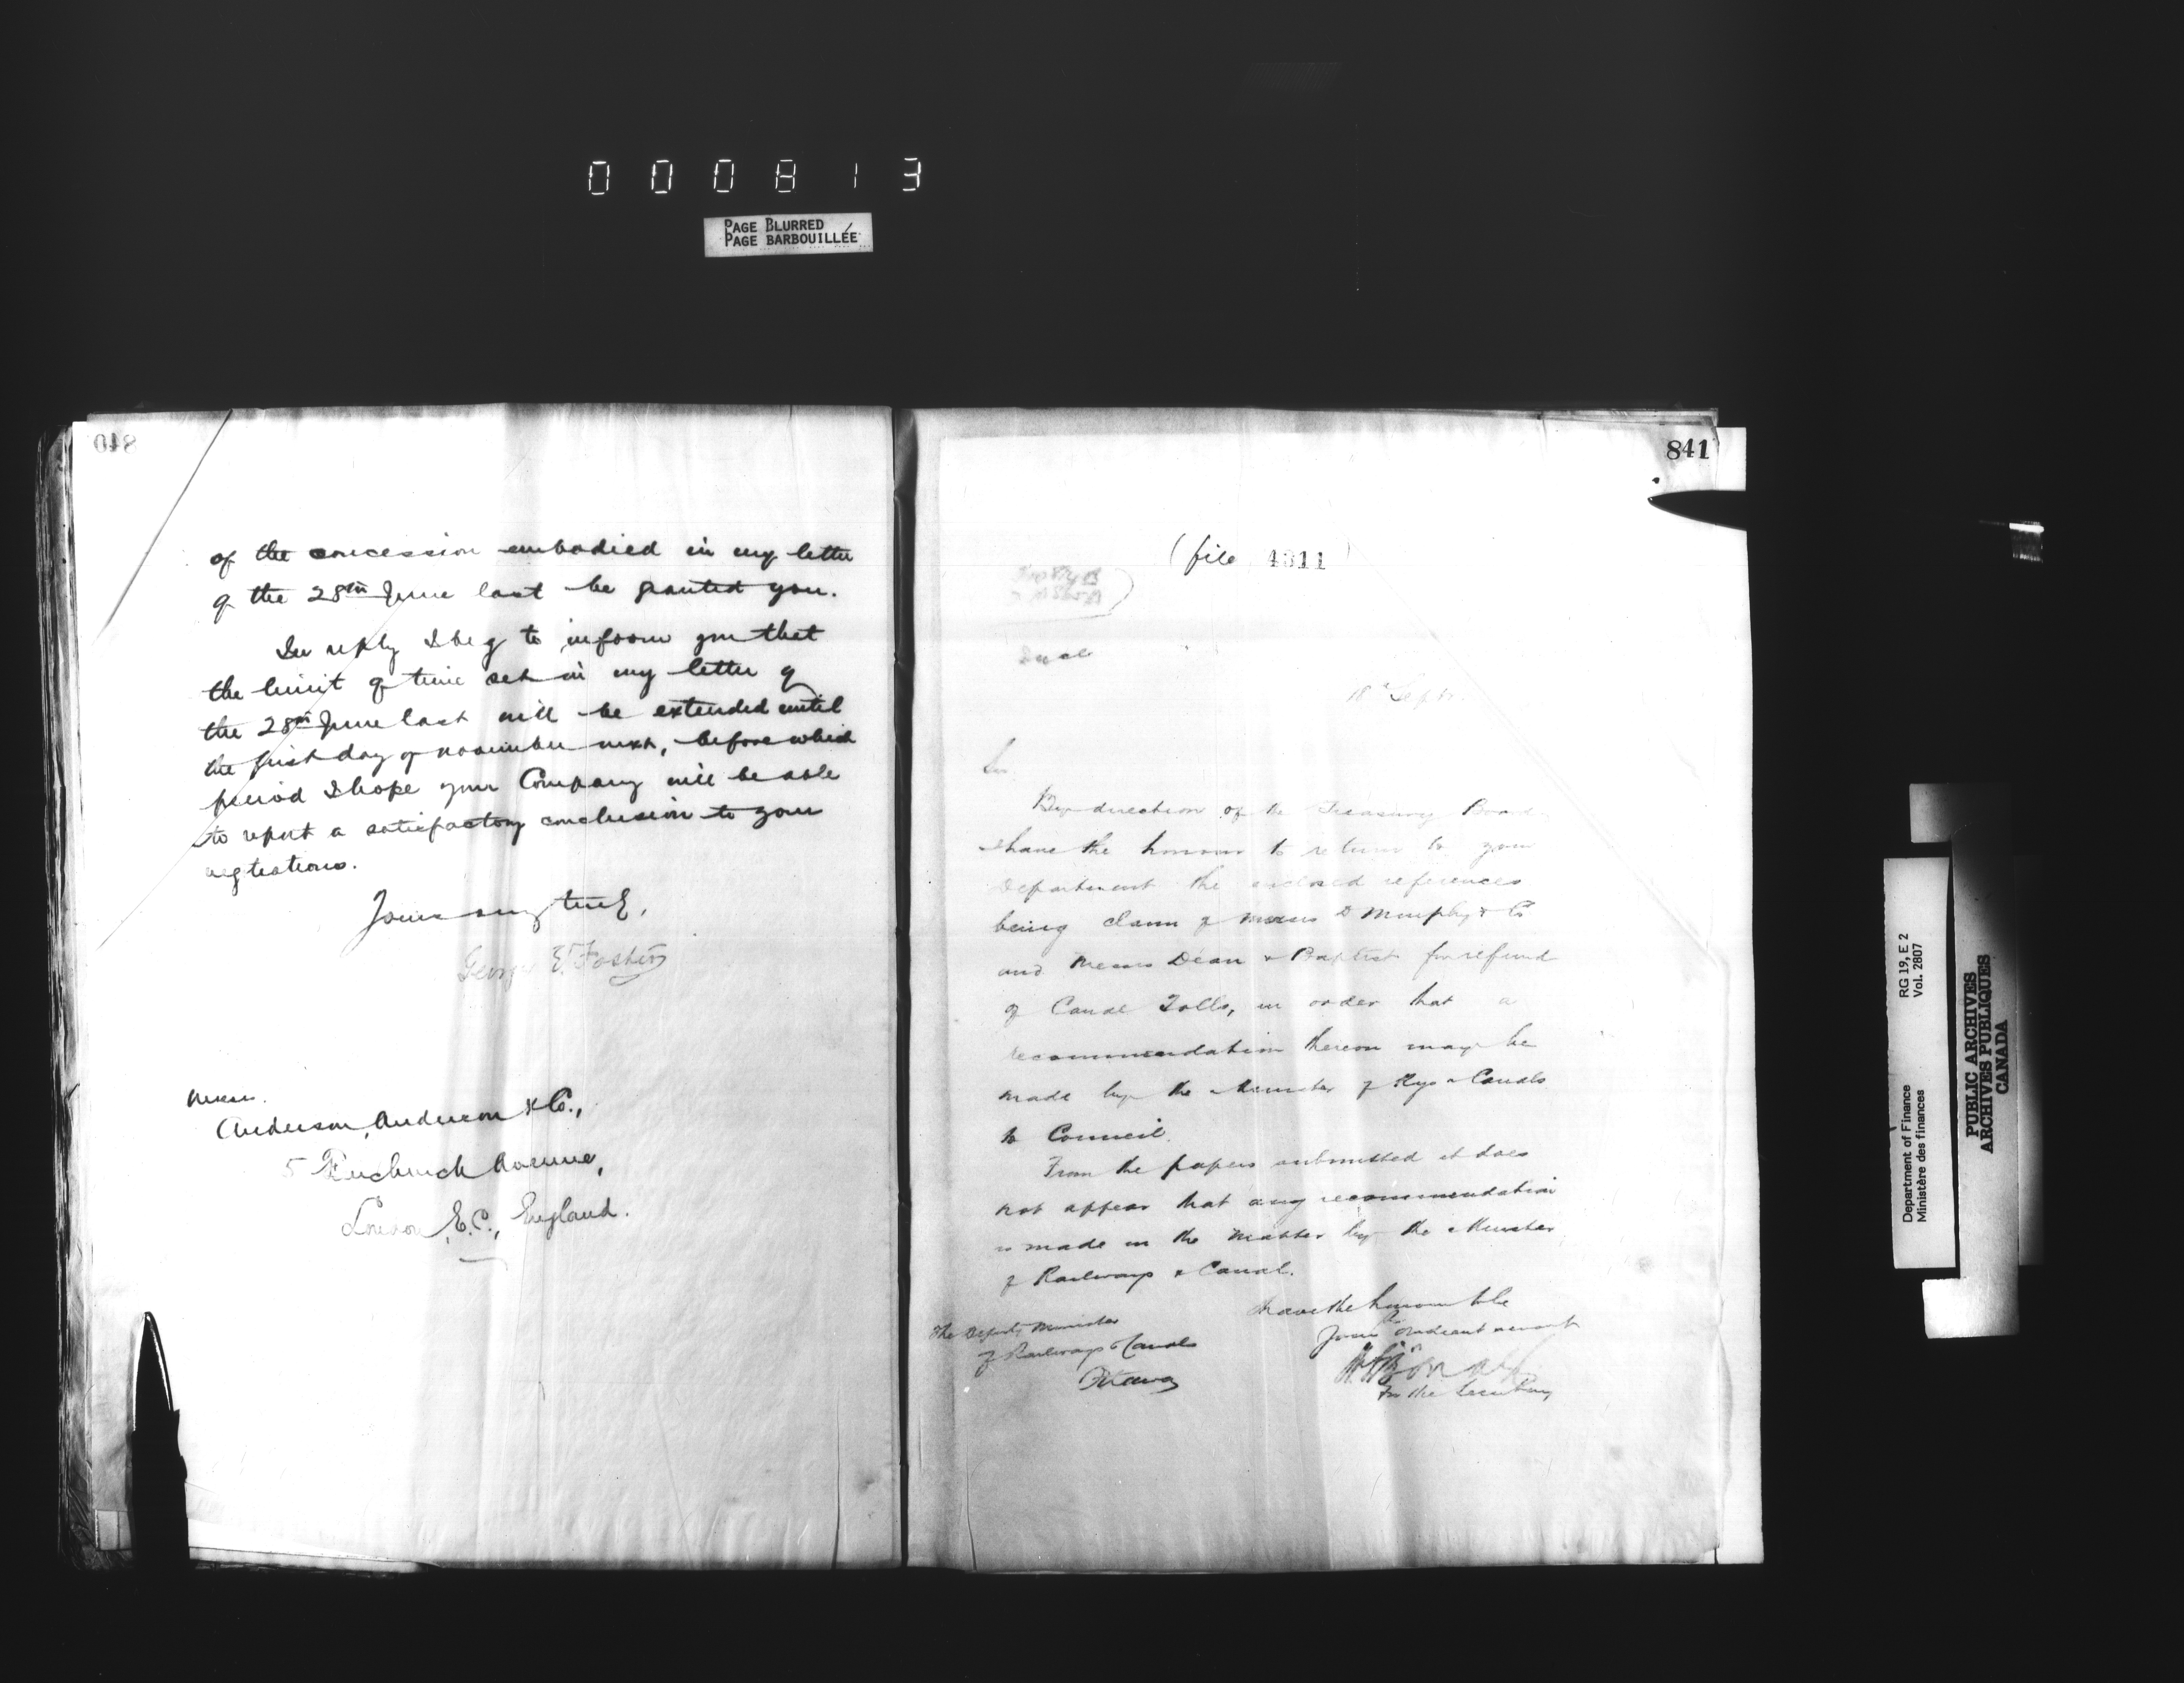 000813
PAGE BLURRED
PAGE BARBOUILLÉE
840
of the concession embodied in my letter
of the 28th June last be granted you.
In reply I beg to inform you that
the limit of time set in my letter of
the 28th June last will be extended until
the first day of November next, before which
period I hope your Company will be able
to report a satisfactory conclusion to your
negtiations.
Yours very truly,
George E. Foster
Messrs.
Anderson, Anderson & Co.,
5 Fenchurch Avenue,
London, E.C., England.
841
(file 4311)
18th Sept.
Sir
By direction of the Treasury Board
I have the honour to return to your
Department the enclosed references
being claim of Messrs D Murphy & Co
and Messrs Dean & Baptist for refund
of Canal Tolls, in order that a
recommendation thereon may be
made by the Minister of Rys & Canals
to Council.
From the papers submitted it does
not appear that any recommendation
is made in the matter by the Minister
of Railways & Canal.
I have the honour to be
Your Obedient servant
For the Secretary
The Deputy Minister
of Railways & Canals
Ottawa
RG 19, E 2
Vol. 2807
Department of Finance
Ministère des finances
PUBLIC ARCHIVES
ARCHIVES PUBLIQUES
CANADA